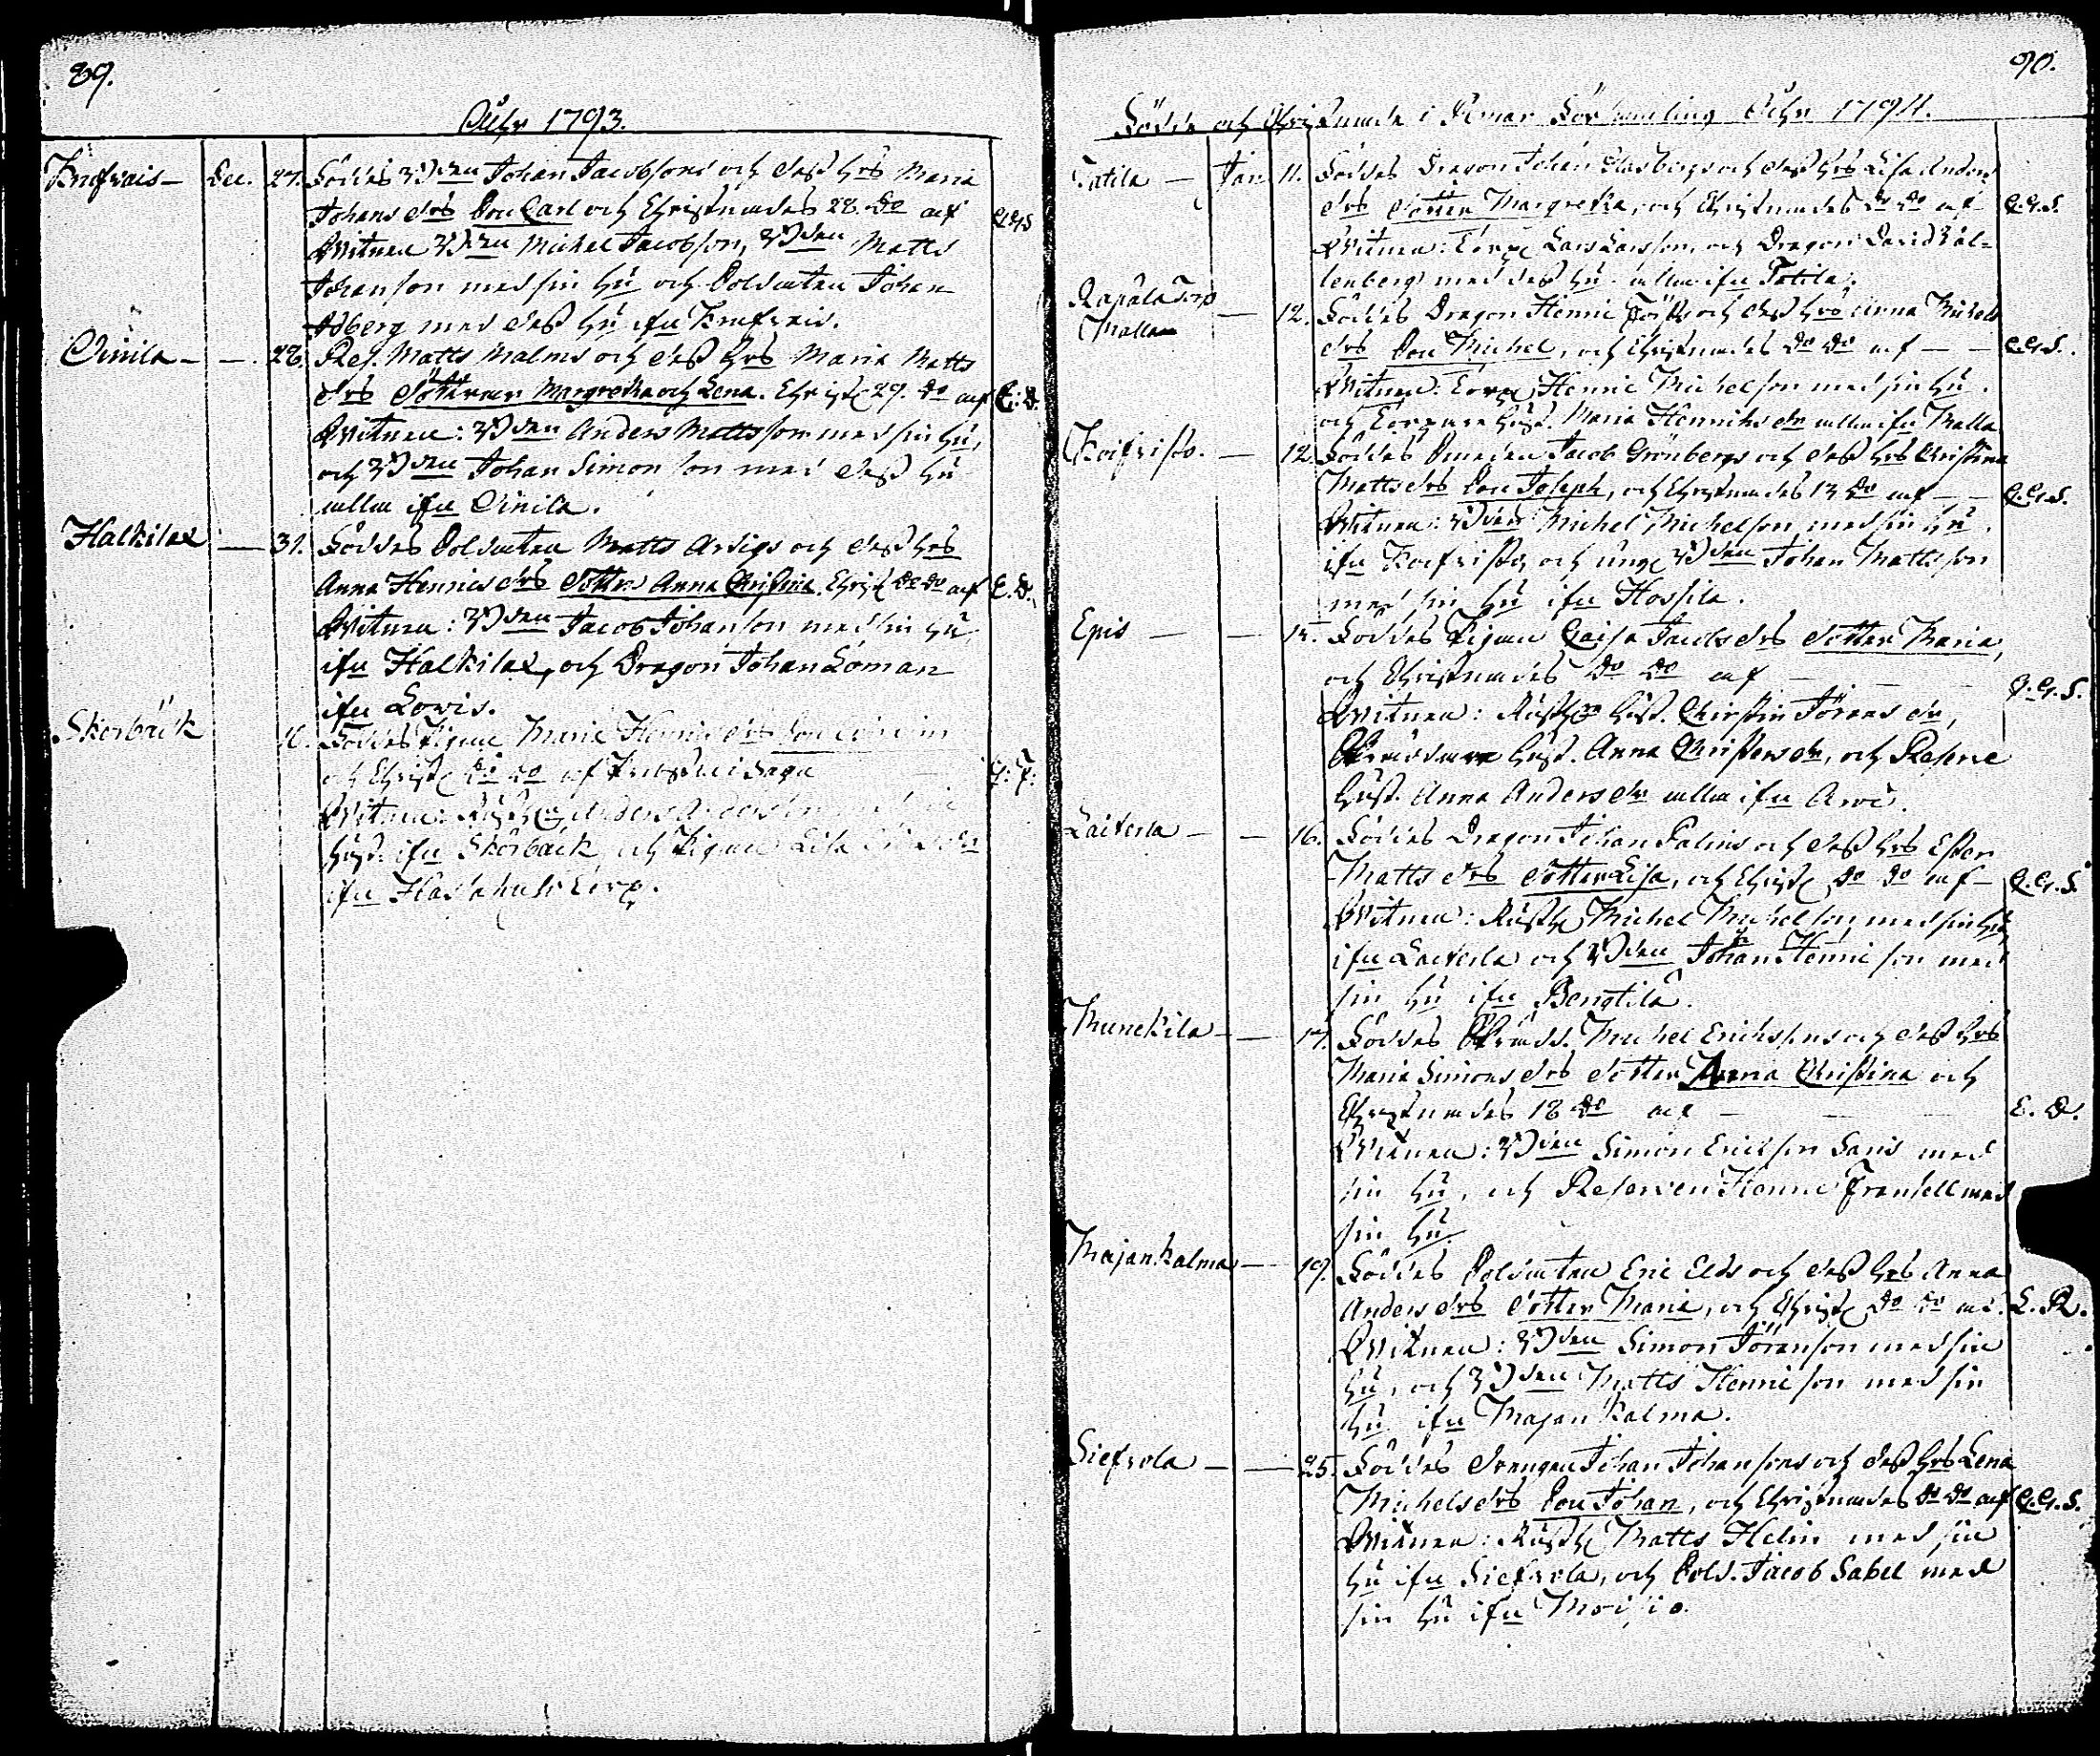 89.
Åhr 1793.
Knefvais – Dec. 27. Föddes Bonden Johan Jacobssons och dess hrs Maria
Johans drs Son Carl och Christnades 28. do af
Witnen Bonden Michel Jacobsson, Bonden Matts
Johansson med sin hu och Soldaten Johan
med dess hu ifrn
Vinila – – 28. Res. Matts Malms och dess hrs Maria Matts
drs Döttrar Margretha och Lena. Christ. 29. do af E: D.
Witnen: Bonden Anders Mattsson med sin hu,
och Bonden Johan Simonsson med dess hu
alla ifrn Vinila.
Halkilax – 31. Föddes Soldaten Matts Ardigs och dess hrs
Anna Henrics drs Dotter Anna Christina. Christ. do do af E. D.
Witnen: Bonden Jacob Johansson med sin hu
ifrn Halkilax, och Dragon Johan Loman
ifrn Lowis.
Skorbäck 16. Föddes Pigan Maria Henrics drs Son
och Christ. do do af
Witnen: Rusth. Anders Andersson
Hust. ifrn Skorbäck, och Pigan Lisa
ifrn Torp.
90.
Födde och Christnade i Pemar Församling Åhr 1794.
Tatila – Jan 11. Föddes Dragon Johan och dess hrs Lisa Anders
drs Dotter Margretha, och Christnades do do af
Witnen: Torp. Lars Larsson, och Dragon David Väl-
lenberg med dess hu alla ifrn Tatila.
Rapala Torp
Malla – 12. Föddes Dragon Henric och dess hrs Anna Michels
drs Son Michel, och Christnades do do af – –
Witnen: Torp. Henric Michelsson med sin hu
och Torpare Hust. Maria Henriks dr alla ifrn Malla
– 12. Föddes Smeden Jacob Grönbergs och dess hrs Christina
Matts drs Son Joseph, och Christnades 13 do af – –
Witnen: Bonden Michel Michelsson med sin hu
ifrn och unge Bonden Johan Mattsson
med sin hu ifrn Hossila.
Epis – – Föddes Pigan Caisa Jacobs drs Dotter Maria,
och Christnades do do af –
Witnen: Rusth. Hust. Christin Jörans dr,
Hust. Anna Christers dr, och Reserve
Hust. Anna Anders dr alla ifrn Arwe.
Laiterla – – 16. Föddes Dragon Johan Palms och dess hrs Ester
Matts drs Dotter Lisa, och Christ. do do af –
Witnen: Rusth. Michel Michelsson, med sin hu
ifrn Laiterla och Bonden Johan Henricsson med
sin hu ifrn Bengtila.
Munckila – – 17. Föddes Michel Erichssons och dess hrs
Maria Simons drs Dotter Anna Christina och
Christnades 18 do af – E. D.
Witnen: Bonden Simon Ericsson Sanis med
sin hu, och Reserven Henric Fransell med
sin hu.
Majankalma – – 19. Föddes Soldaten Eric Elds och dess hrs Anna
Anders drs Dotter Maria, och Christ. do do af L. R.
Witnen: Bonden Simon Jöransson med sin
hu, och Bonden Matts Henricsson med sin
hu ifrn Majankalma.
Siefvola – – 25. Föddes Drengen Johan Johanssons och dess hrs Lena
Michels drs Son Johan, och Christnades do do af
Witnen: Rusth. Matts Helin med sin
hu ifrn Siefvola, och Sold. Jacob Sabel med
sin hu ifrn Moisio.